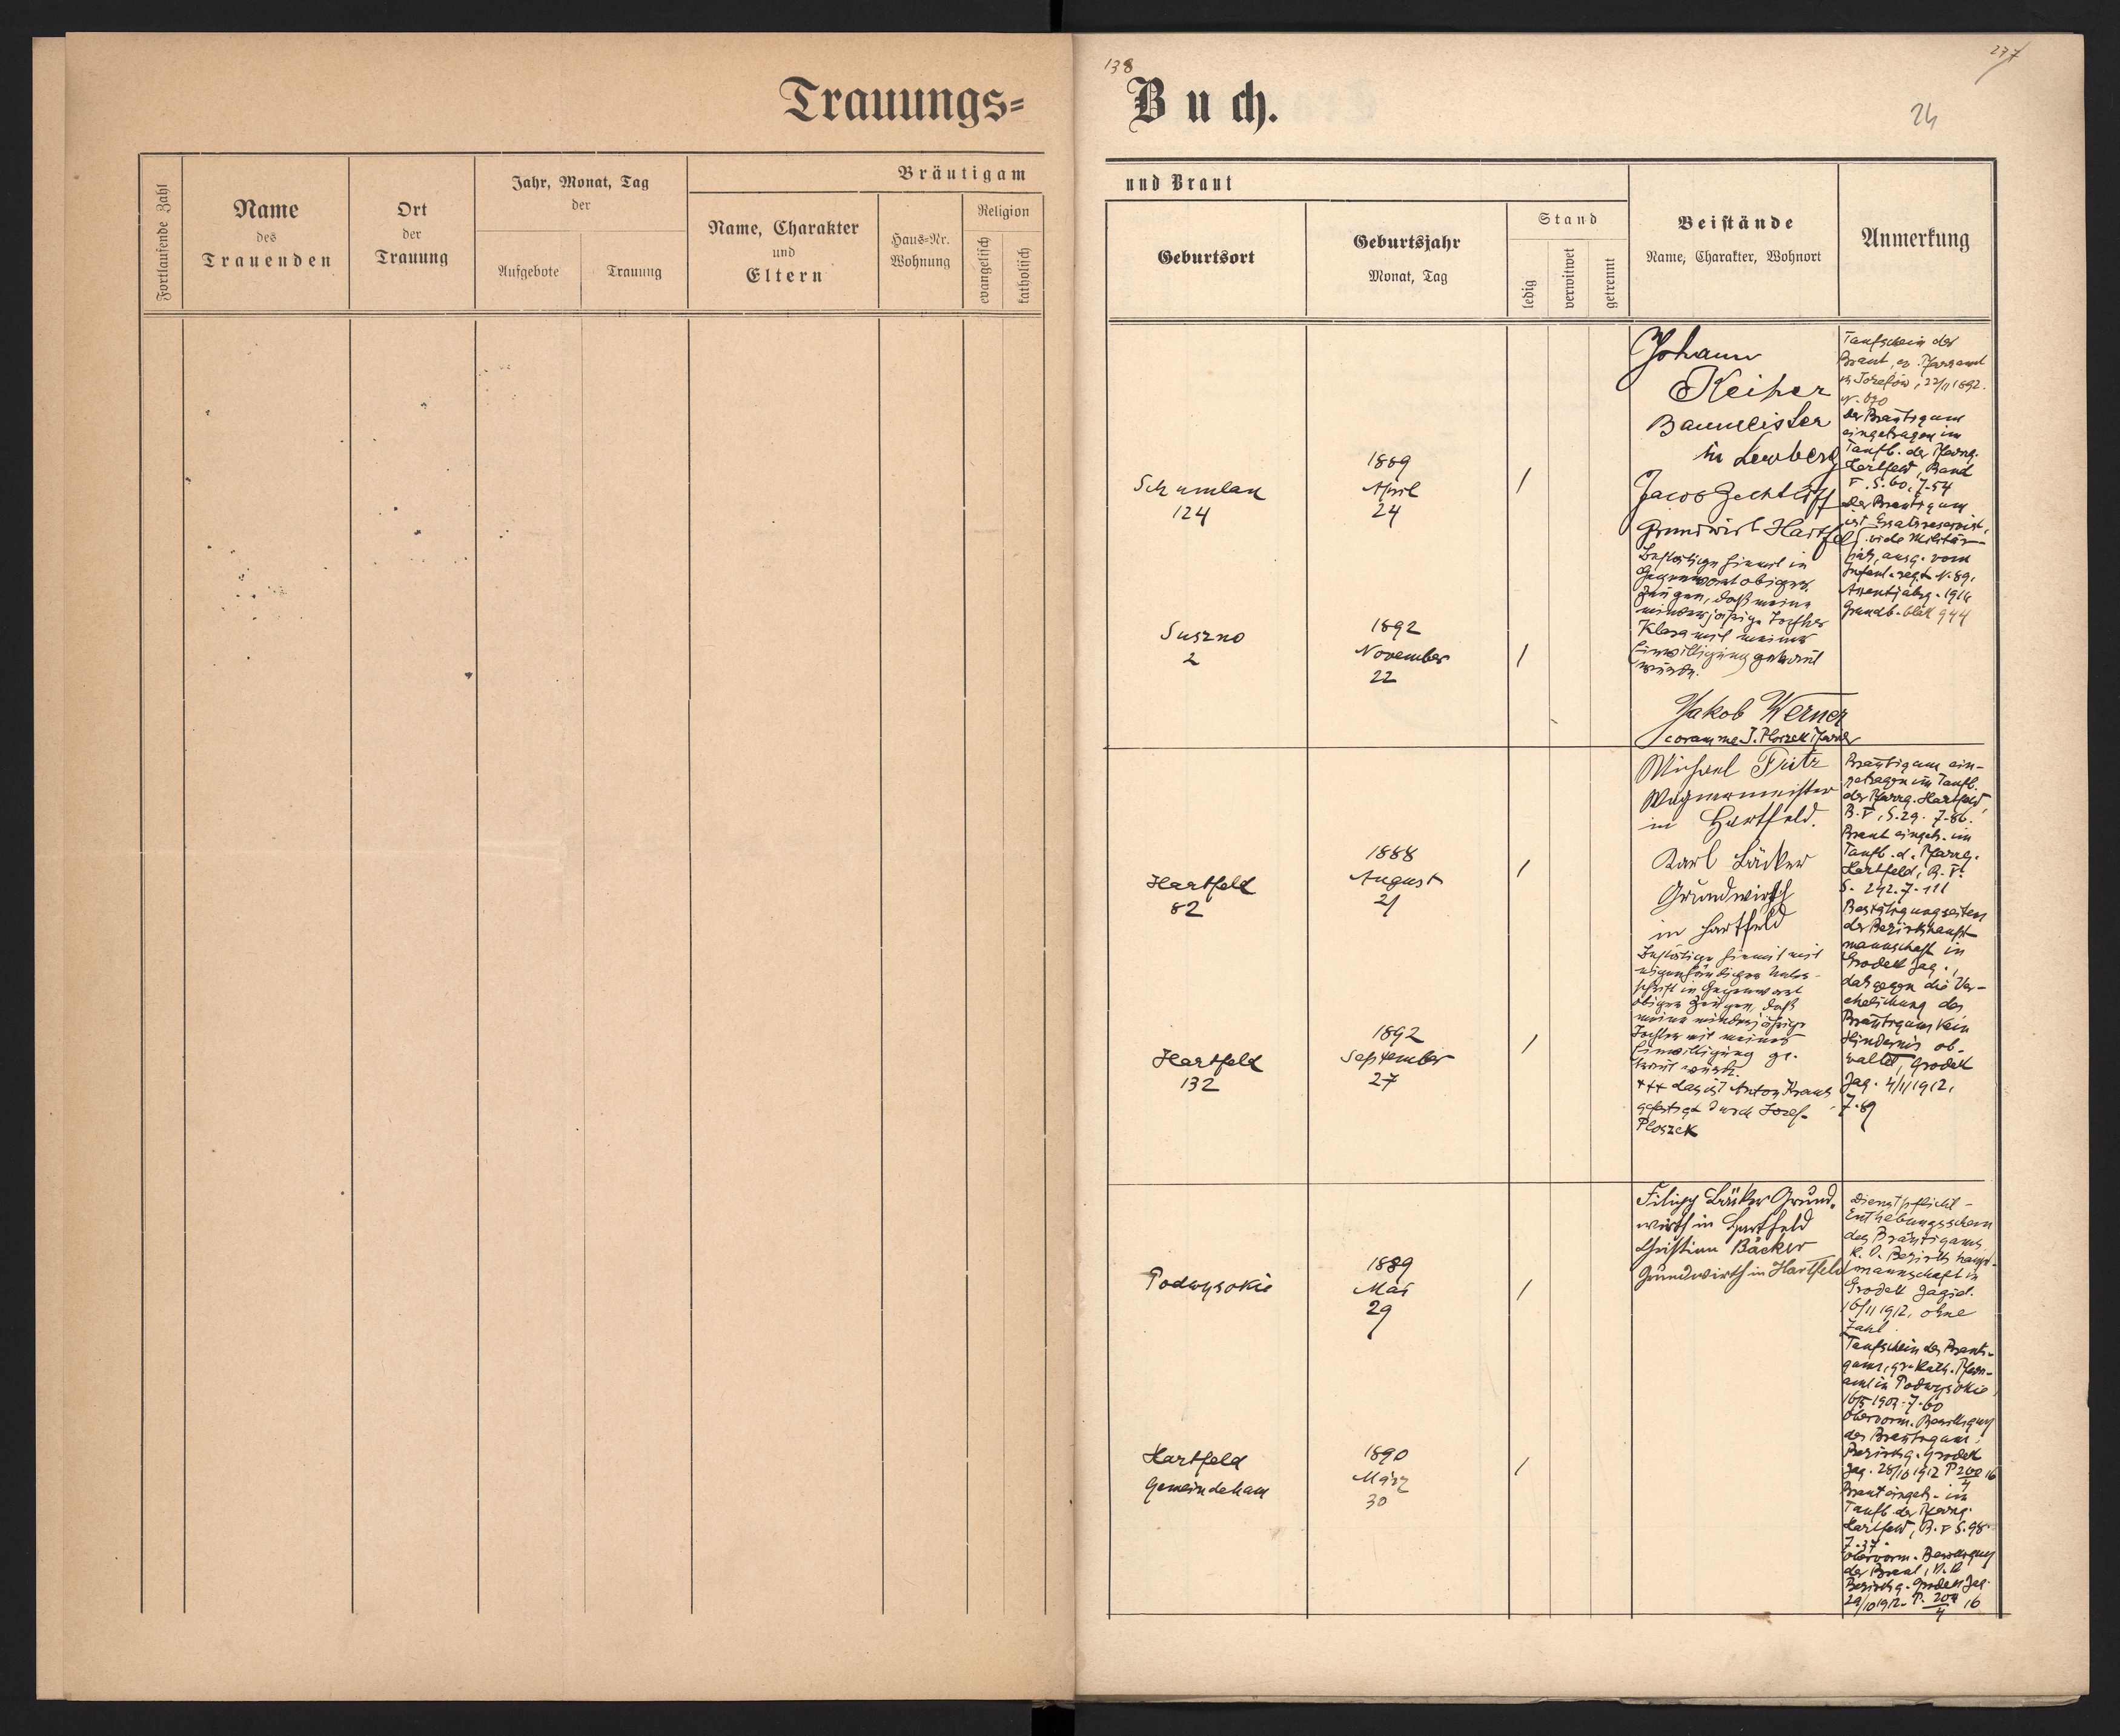 Trauungs=
138
Buch.
237
24
Fortlaufende Zahl
Name
des
Trauenden
Ort
der
Trauung
Jahr, Monat, Tag
der
Aufgebote
Trauung
Bräutigam
Name, Charakter
und
Eltern
Haus=Nr.
Wohnung
Religion
evangelisch
katholisch
und Braut
Geburtsort
Geburtsjahr
Monat, Tag
Stand
ledig
verwitwet
getrennt
Beistände
Name, Charakter, Wohnort
Anmerkung
Schumlau
124
1889
April
24
/
Suszno
2
1892
November
22
/
Johann
Keiper
Baumeister
in Lemberg
Jacob
Grundwirt Hartfeld
Bestätige hiemit in
Gegenwart obiger
Zeugen, daß meine
minderjährige Tochter
Klara mit meiner
Einwilligung getraut
wurde.
Jakob Werner
coram me J. Ploszek Pfarrer
Taufschein der
Braut, ev. Pfarramt
in Josefów, 22/11 1892.
N. 670
der Bräutigam
eingetragen im
Taufb. der Pfarrg.
Hartfeld, Band
V, S. 60, Z. 54
der Bräutigam
ist Ersatzreservist,
vide Militär-
paß, ausg. vom
Infant.regt N. 89.
Assentjahrg. 1914
Grundb.blatt 944
Hartfeld
82
1888
August
21
/
Hartfeld
132
1892
September
27
/
Michael
Wagnermeister
in Hartfeld.
Karl Bäcker
Grundwirth
in Hartfeld
Bestätige hiemit mit
eigenhändiger Unter-
schrift in Gegenwart
obiger Zeugen, daß
meine minderjährige
Tochter mit meiner
Einwilligung ge-
traut wurde.
+++ das ist Anton Kraus
gefertigt durch Josef
Ploszek
Bräutigam ein-
getragen im Taufb.
der Pfarrg. Hartfeld,
B. V, S. 29. Z. 86.
Braut eingetr. im
Taufb. d. Pfarrg.
Hartfeld, B. V.
S. 242. Z. 111
Bestätigung seiten
der Bezirkshaupt-
mannschaft in
Grodek Jag.,
daß gegen die Ver-
ehelichung des
Bräutigams kein
Hindernis ob-
waltet, Grodek
Jag. 4/11 1912.
Z. 89
Podwysokie
1889
Mai
29
/
Hartfeld
Gemeindehaus
1890
März
30
/
Filipp Bäcker Grund-
wirth in Hartfeld
Christian Bäcker
Grundwirth in Hartfeld
Dienstpflicht-
Enthebungsschein
des Bräutigams,
K. K. Bezirkshaupt-
mannschaft in
Grodek Jagiel.
16/11 1912. ohne
Zahl
Taufschein des Bräuti-
gams, gr. Kath. Pfarr-
amt in Podwysokie
16/5 1902. Z. 60
Obervorm. Bewilligung
des Bräutigams,
Bezirksg. Grodek
Jag. 28/10 1912 P 200/4 16
Braut eingetr. im
Taufb. der Pfarrg.
Hartfeld, B. V S. 98.
Z. 37.
Obervorm. Bewilligung
der Braut, K. K.
Bezirksg. Grodek Jag.
29/10 1912. P. 204/4 16